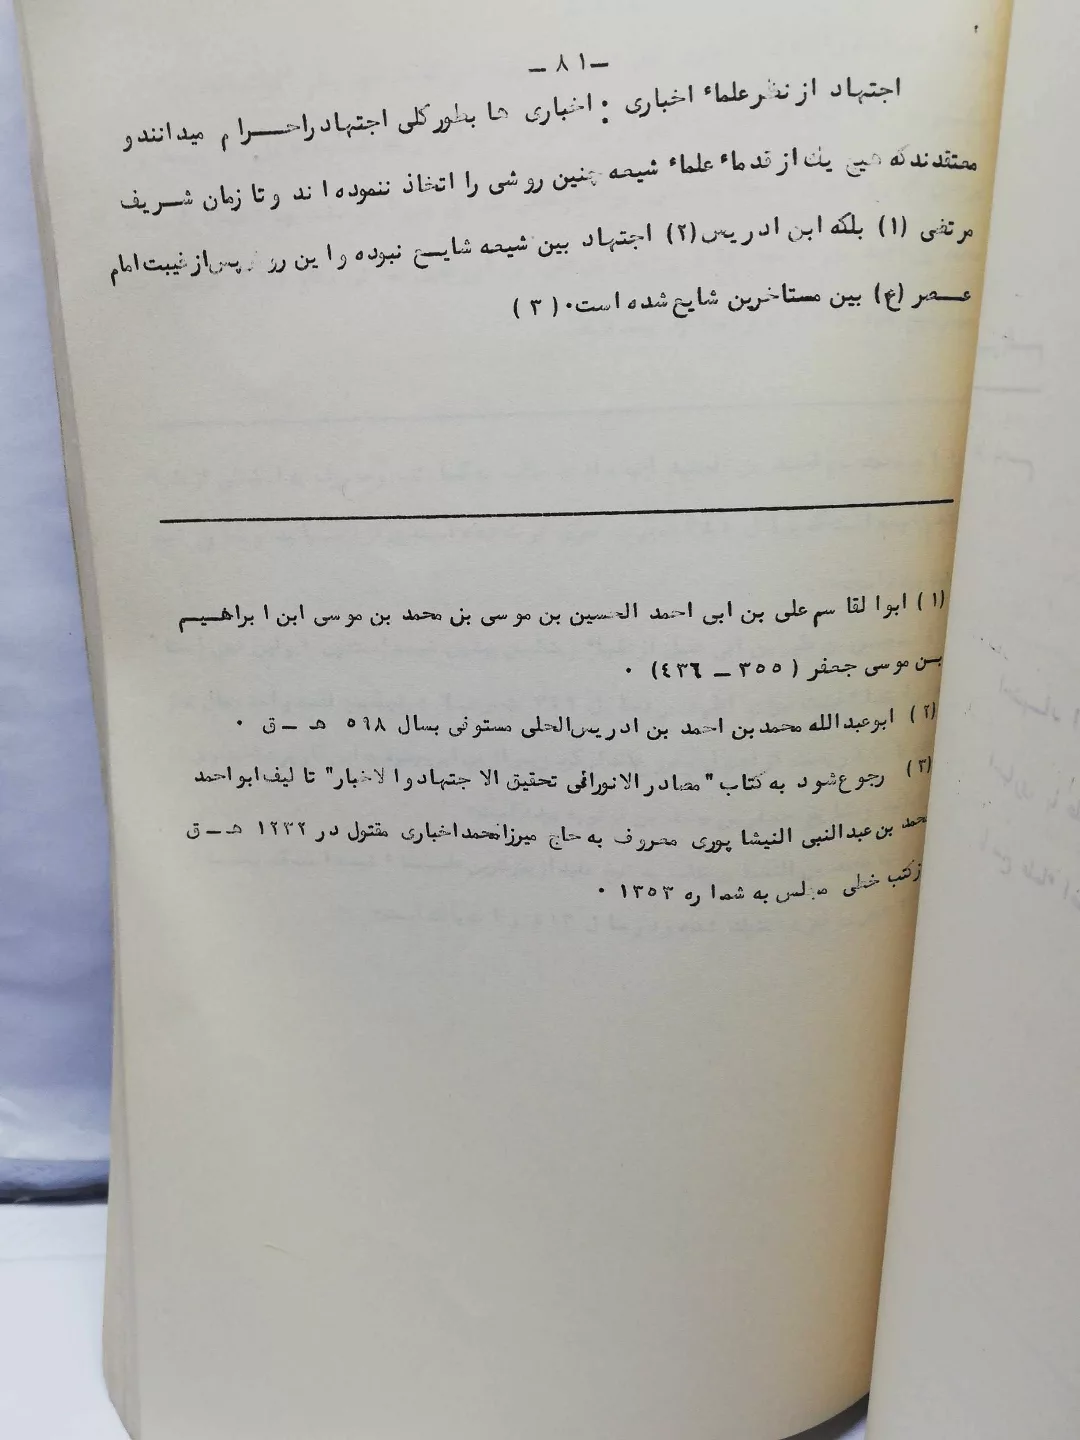 ـ ٨١ ـ
اجتهاد از نظر علماء اخباری : اخباری ها بطور کلی اجتهاد را حـــرام میدانند و
معتقدند که هیچ یک از قدماء علماء شیعه چنین روشی را اتخاذ ننموده اند و تا زمان شـریف
مرتضی (١) بلکه ابن ادریس (٢) اجتهاد بین شیعه شایـع نبوده و این روش پس از غیبت امام
عـصر (ع) بین مستاخرین شایع شده است. (٣)
(١) ابوالقاسم علی بن ابی احمد الحسین بن موسی بن محمد بن موسی ابن ابراهـیم
بـن موسی جعفر (٣٥٥ ـ ٤٣٦) .
(٢) ابوعبدالله محمد بن احمد بن ادریس الحلی مستوفی بسال ٥٩٨ هـ ـ ق .
(٣) رجوع شود به کتاب "مصادر الانوار فی تحقیق الاجتهاد و الاخبار" تالیف ابو احمد
محمد بن عبدالنبی النیشاپوری معروف به حاج میرزا محمد اخباری مقتول در ١٢٣٢ هـ ـ ق
از کتب خطی مجلس به شماره ١٣٥٣ .